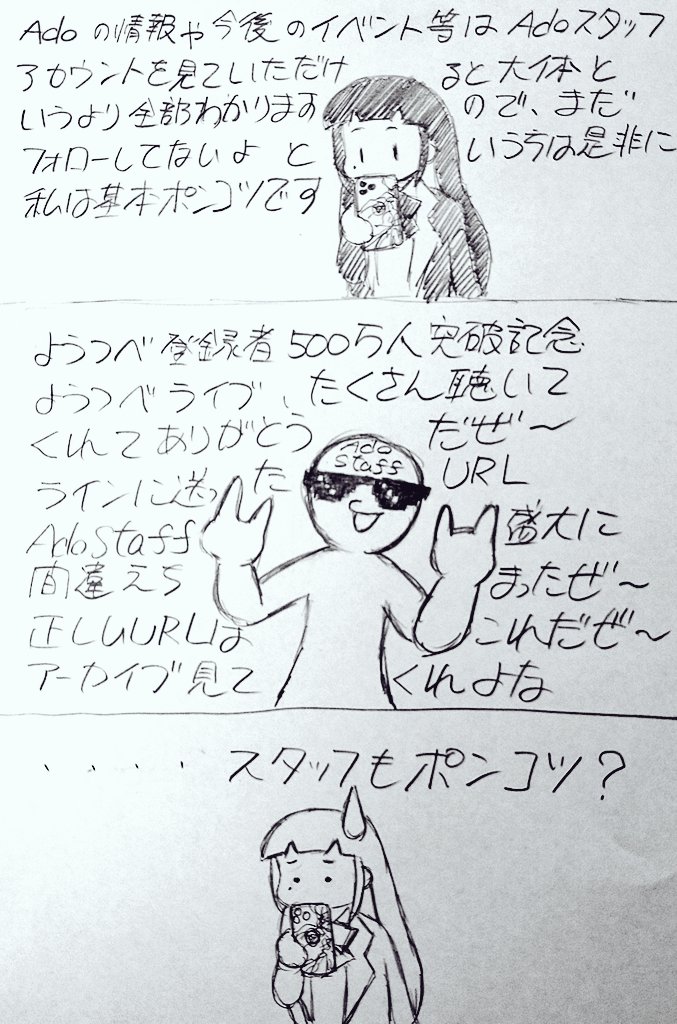 Adoの情報や今後のイベント等はAdoスタッフ
アカウントを見ていただけると大体と
いうより全部わかりますので、まだ
フォローしてないよというちは是非に
私は基本ポンコツです
ようつべ登録者500万人突破記念
ようつべライブ、たくさん聴いて
くれてありがとうだぜ〜
ラインに送ったURL
AdoStaff盛大に
間違えちまったぜ〜
正しいURLはこれだぜ〜
アーカイブ見てくれよな
Ado
Staff
・・・・スタッフもポンコツ?